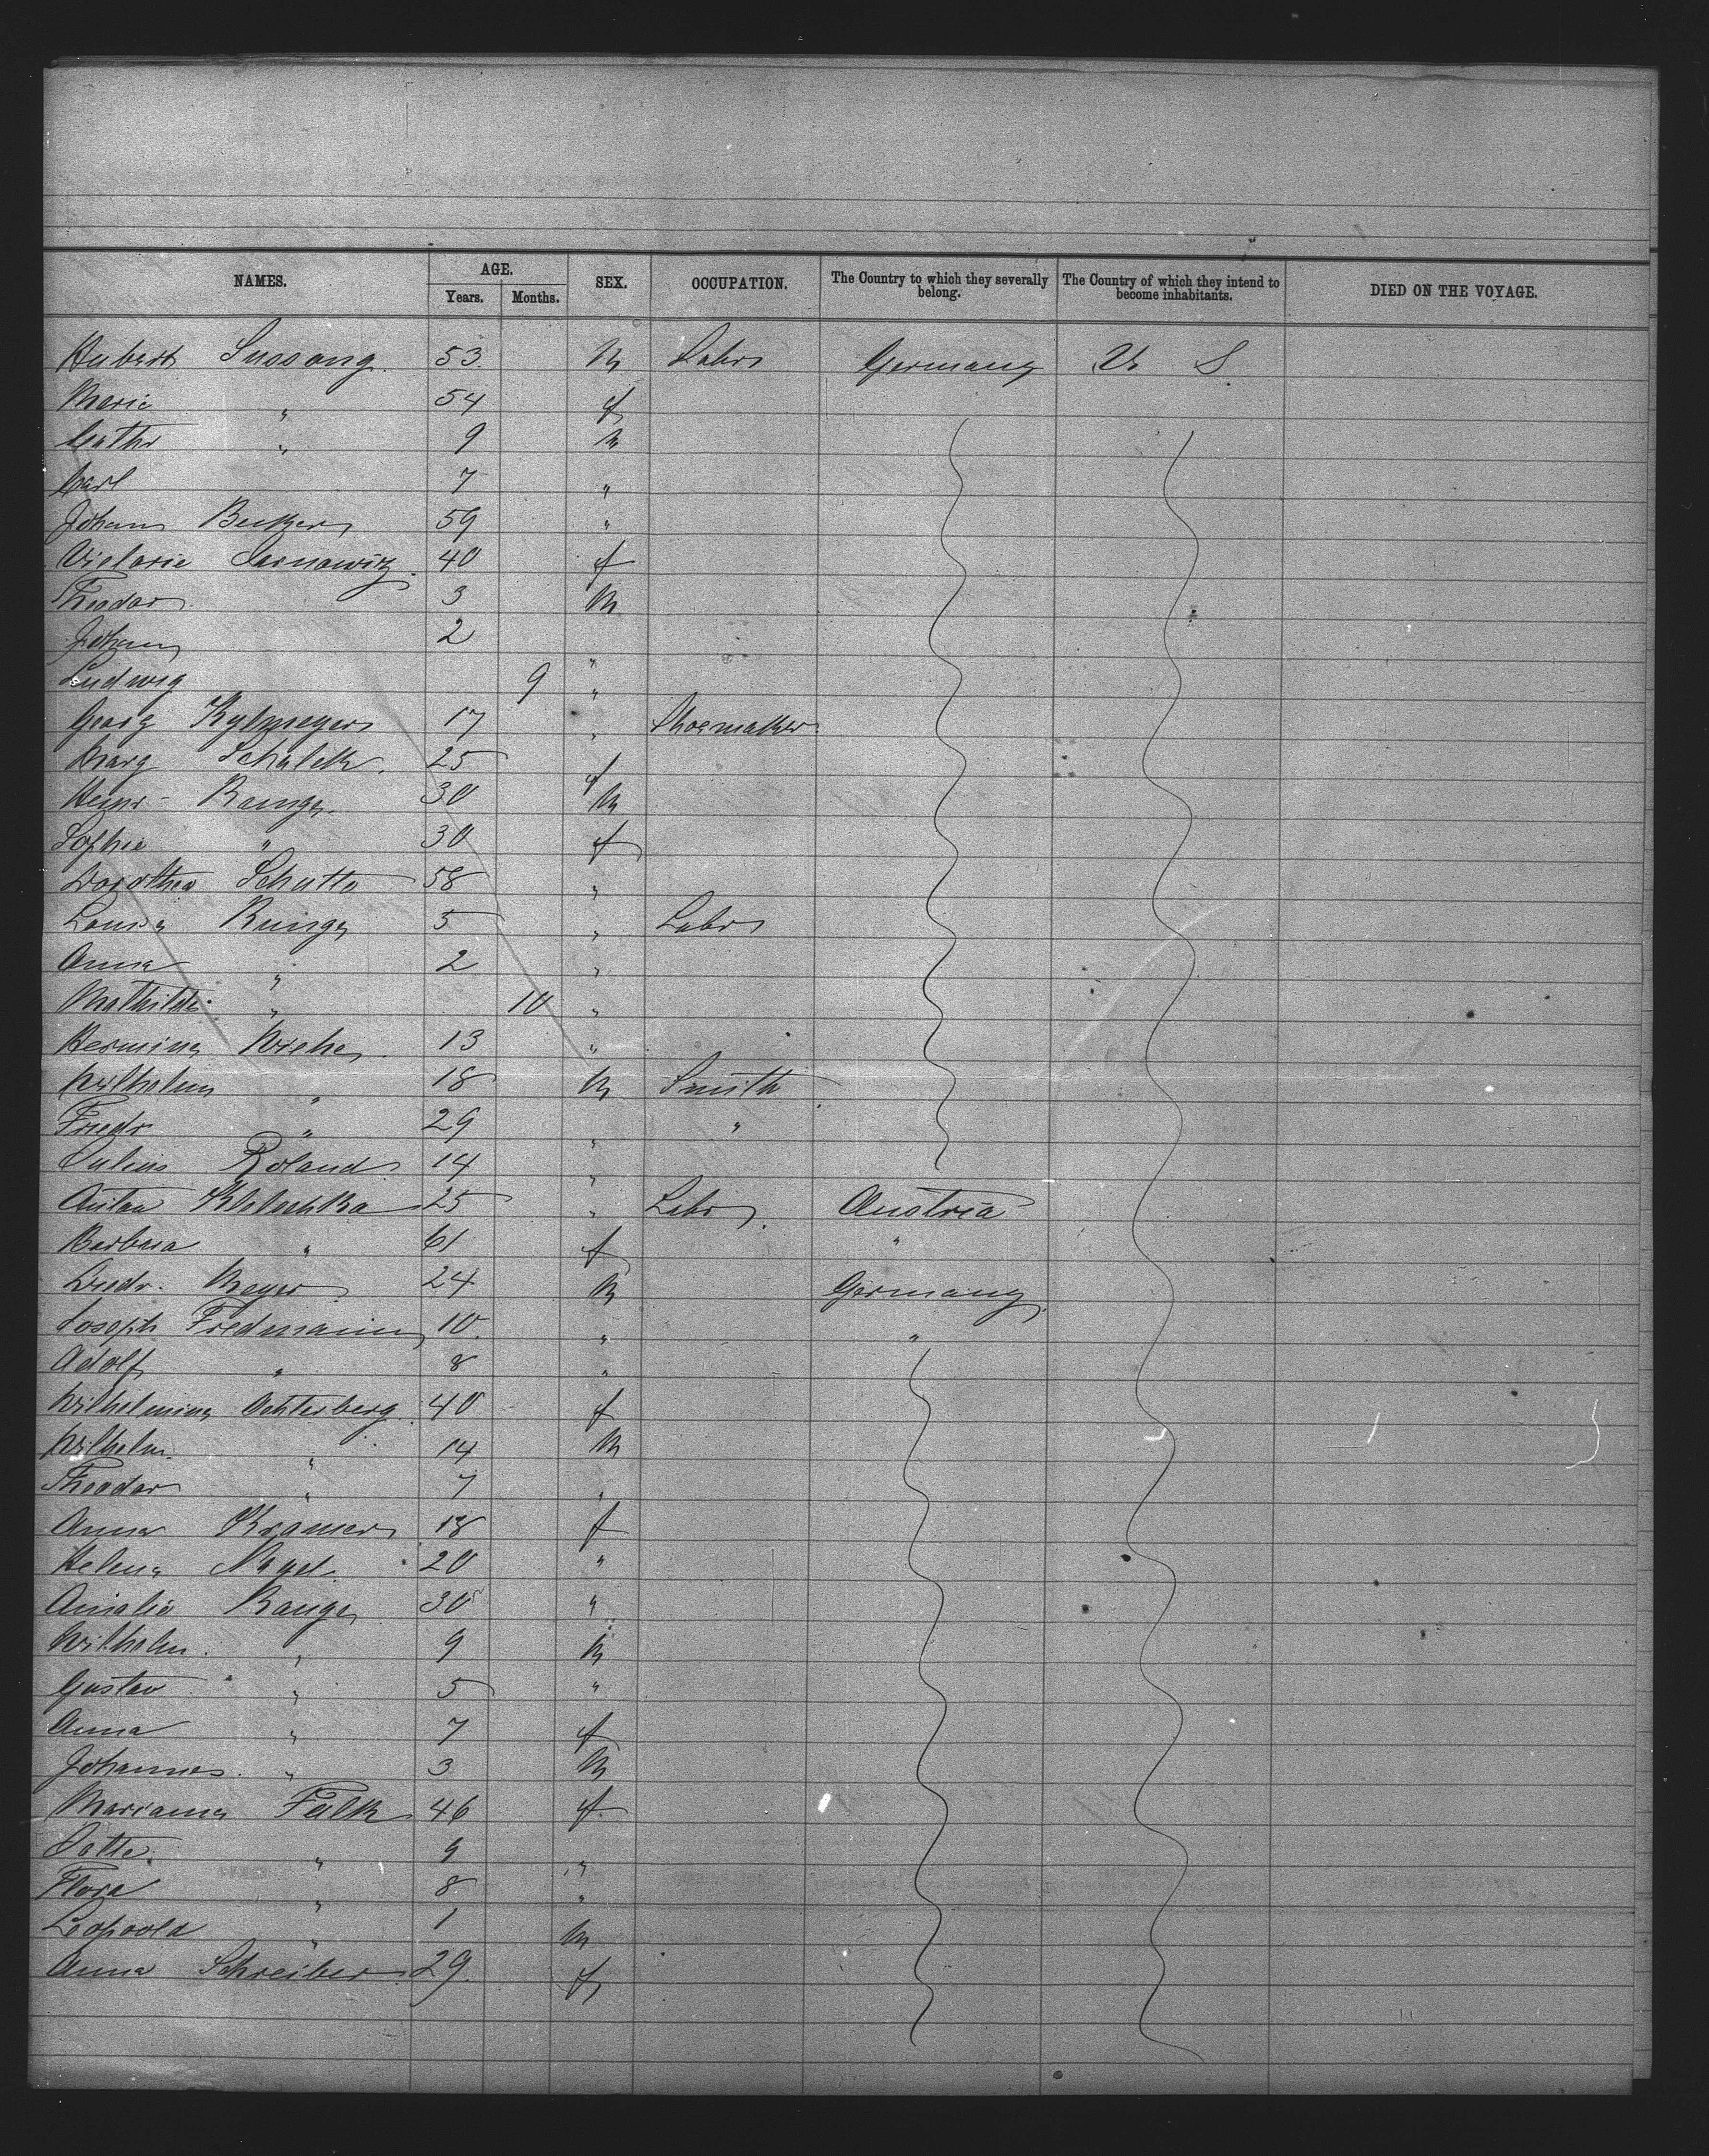 NAMES. AGE. SEX. OCCUPATION. The Country to which they severally belong. The Country of which they intend to become inhabitants. DIED ON THE VOYAGE.
Years. Months.
Hubert Sussang. 53. M Labr Germany U S.
Marie " 54 f
Cathr " 9 M
Carl 7 "
Johann Becker 59 "
Victorie Sarnowitz. 40 f
Theodor 3 M
Johann 2 "
Ludwig 9 "
Georg 17 " Shoemaker.
Marg Schalck. 25 f
Heinr - Runge. 30 M
Sophie " 30 f
Dorothea Schutte 58 "
Louisa Runge 5 " Labr
Anna " 2 "
Mathilde " 10 "
Hermine Wiehe. 13 "
Wilhelm " 18 M Smith.
Friedr " 29 " "
Julius Roland 14 "
Anton 25 " Labr. Austria
Barbara " 61 f "
Diedr. Meyer 24 M Germany.
Joseph Fredmann 10. " "
Adolf " 8 "
Wilhelmina Achterberg. 40 f
Wilhelm. " 14 M
Theodor " 7 "
Anna Kramer 18 f
Helena Nagel. 20 "
Amalie Range 30 "
Wilhelm. " 9 M
Gustav " 5 "
Anna " 7 f
Johannes. " 3 M
Marianna Falk 46 f
" 9 "
Flora " 8 "
Leopold " 1 M
Anna Schreiber. 29. f